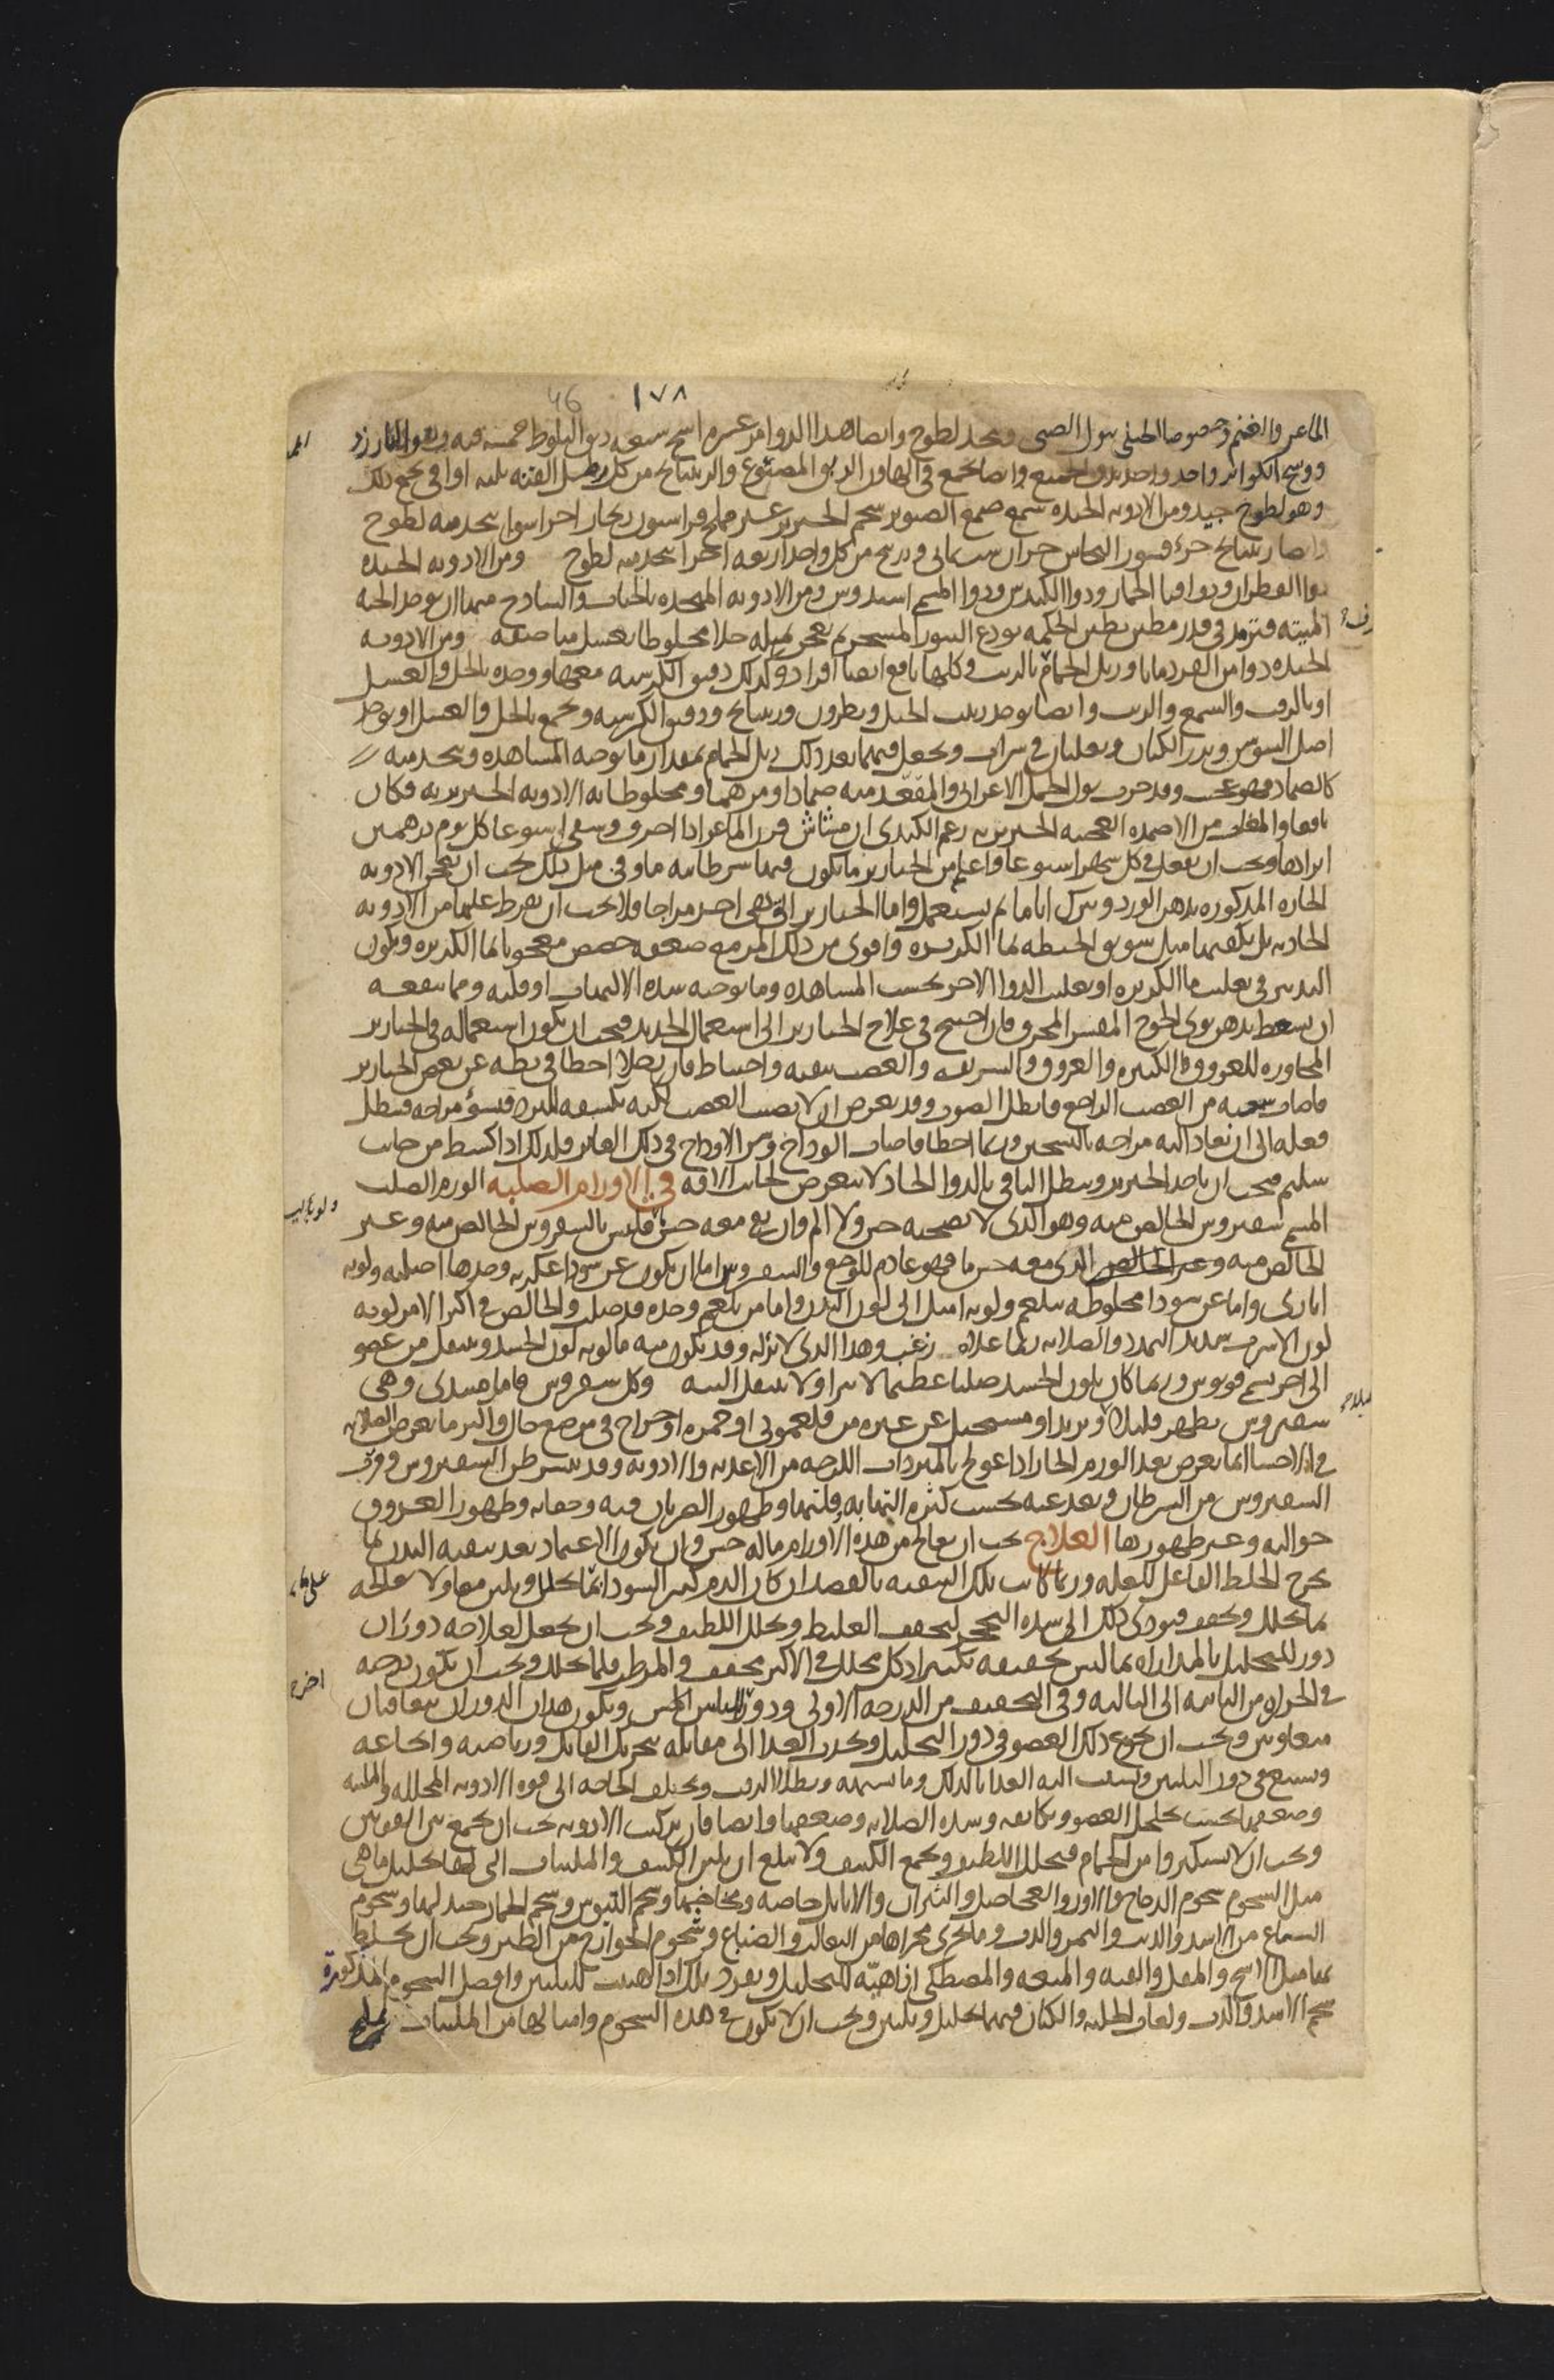 ١٧٨ 46
الماعز والغنم وخصوصا الجبلي ببول الصبي ويتخذ لطوخ وايضا هذا الدوا مر عشرة اشج سبعة دبق البلوط خمسة قنه وبارزد
ووسخ الكواير واحد واحد يدق الجميع وايضا يجمع في الهاون الدبق المصوع والريتيانج من كل رطل القنه ثلثه اواقي يجمع ذلك
وهو لطوخ جيد ومن الادويه الجيده شمع صمغ الصنوبر شحم الخنزير غير مملح فراسيون زنجار اجزا سوا يتخذ منه لطوخ
وايضا ريتيانج جزء قشور النحاس جزان شب يماني وزرنيخ من كل واحد اربعه اجزا يتخذ منه لطوخ ومن الادويه الجيده
دوا القطران ودوا قثا الحمار ودوا الكندس ودوا المسمى اسندروس ومن الادويه المتخذه بالحيات والسلاح منها ان يوخذ الحيه
الميته وترمد في قدر مطين بطين الحكمه يودع التنور المسجر ثم يعجن بمثله خلا مخلوطا بعسل مناصفه ومن الادويه
الجيده دوا من القردمانا وزبل الحمام بالزيت وكلها نافع ايضا افرادا وكذلك دقيق الكرسنه معهما ووحده بالخل والعسل
او بالزفت والشمع والزيت وايضا يوخذ زبيب الجبل ونطرون وريتيانج ودقيق الكرسنه ويجمع بالخل والعسل او يوخذ
اصل السوس وبزر الكتان ويغليان في شراب ويجعل فيهما بعد ذلك زبل الحمام بمقدار ما توجبه المشاهده ويتخذ منه
كالضماد فهو عجيب وقد جرب بول الجمل الاعرابي والمعقد منه ضمادا ومرهما ومخلوطا به الادويه الخنزيريه فكان
نافعا والمغاث من الاضمده العجيبه الخنزيريه زعم الكندي ان مشاش قرن الماعز اذا احرق وسقي اسبوعا كل يوم درهمين
ابراها ويجب ان يفعل في كل شهر اسبوعا واعلم من الخنازير ما يكون فيها سرطانيه ما وفي مثل ذلك يجب ان يعجن الادويه
الحاره المذكوره بدهن الورد ويترك اياما ثم يستعمل واما الخنازير التي هي احر مزاجا فلا يجب ان يفرط عليها من الادويه
الحاده بل يكفيها مثل سويق الحنطه بما الكزبره واقوى من ذلك المر مع ضعفه حضض معجونا بما الكزبره ويكون
التدبير في تغليب ما الكزبره او تغليب الدوا الاخر بحسب المشاهده وما توجبه شده الالتهاب او قلته ومما ينفعه
ان يسعط بدهن نوى الخوخ المقشر المحرق فان احتيج في علاج الخنازير الى استعمال الحديد فيجب ان يكون استعماله في الخنازير
المجاوره للعروق الكبيره والعروق الشريفه والعصب بتقيه واحتياط فان رجلا اخطا في بطه عن بعض الخنازير
فاصاب شعبه من العصب الراجع فابطل الصوت وقد يعرض ان لا يصيب العصب لكنه يكشفه للبرد فيسو مزاجه فيبطل
فعله الى ان يعاد اليه مزاجه بالتسخين وربما اخطا فاصاب الوداج وشر الاوداج في ذلك الغاير فلذلك اذا كشط من جانب
سليم فيجب ان ياخذ الخنزير ويبطل الباقي بالدوا الحاد لا يتعرض لجانب الافه في الاورام الصلبه الورم الصلب
المسمى سقيروس الخالص منه وهو الذي لا يصحبه حس ولا الم وان بقي معه حس ما فليس بالسقيروس الخالص منه وغير
الخالص منه وغير الخالص الذي معه حس ما فهو عادم للوجع والسقيروس اما ان يكون عن سودا عكريه وحدها اصليه ولونه
اباري واما عن سودا مخلوطه ببلغم ولونه اميل الى لون البدن واما من بلغم وحده قد صلب والخالص في اكثر الامر لونه
لون الاسرب شديد التمدد والصلابه ربما علاه زغب وهذا الذي لا برا له وقد يكون منه ما لونه لون الجسد وينتقل من عضو
الى اخر يسمى قونوس وربما كان بلون الجسد صلبا عظيما لا يبرا ولا ينتقل البته وكل سقيروس فاما مبتدي وهي
سقيروس يظهر قليلا ويزيد او مستحيل عن غيره من فلغموني او حمره او خراج في موضع خال واكثر ما يعرض الصلابه
في الاحشا انما يعرض بعد الورم الحار اذا عولج بالمبردات اللزجه من الاغذيه والادويه وقد يتسرطن السقيروس وقرب
السقيروس من السرطان وبعده عنه بحسب كثره التهابه وقلتها وظهور الضربان فيه وخفايه وظهور العروق
حواليه وغير ظهورها العلاج يجب ان يعالج من هذه الاورام ما له حس وان يكون الاعتماد بعد تنقيه البدن بما
يخرج الخلط الفاعل للعله وربما كانت تلك التنقيه بالفصد ان كان الدم كثير السودا بما يحلل ويلين معا ولا يعالجه
بما يحلل ويجفف فيودي ذلك الى شده التحجر لتجفف الغليظ وتحلل اللطيف ويجب ان يجعل لعلاجه دوران
دور للتحليل بالمداواه بما ليس تجفيفه بكثير اذ كل محلل في الاكثر مجفف والمرطب قلما يحلل ويجب ان يكون درجه
في الحراره من الثانيه الى الثالثه وفي التجفيف من الدرجه الاولى ودور للتليين ويكون هذان الدوران متعاقبان
متعاونين ويجب ان يجوع ذلك العضو في دور التحليل ويجذب الغذا الى مقابله بتحريك المقابل ورياضته واجاعه
ويشبع في دور التليين ويجذب اليه الغذا بالدلك وما يشبهه وبطلا الزفت ويختلف الحاجه الى قوه الادويه المحلله والملينه
وضعفها بحسب تخلخل العضو وتكاثفه وشده الصلابه وضعفها وايضا فان تركيب الادويه يجب ان يجمع بين القوتين
ويجب ان لا يستكثروا من الحمام فيحلل اللطيف ويجمع الكثيف ولا يبلغ ان يلين الكثيف والملينات التي لها تحليل ما هي
مثل الشحوم شحوم الدجاج والاوز والعجاجيل والثيران والايايل خاصه ومخاخها وشحم التيوس وشحم الحمار جيد لها وشحوم
السباع من الاسد والذيب والنمر والدب وما يجري مجراها من الثعالب والضباع وشحوم الجوارح من الطير ويجب ان يخلط
بها مثل الاشج والمقل والقنه والميعه والمصطكي اذا هيئه للتحليل ويفرد تلك اذا هيئت للتليين وافضل الشحوم المذكورة
شحم الاسد والدب ولعاب الحلبه والكتان فيهما تحليل وتليين ويجب ان لا يكون في هذه الشحوم وامثالها من الملينات ملح